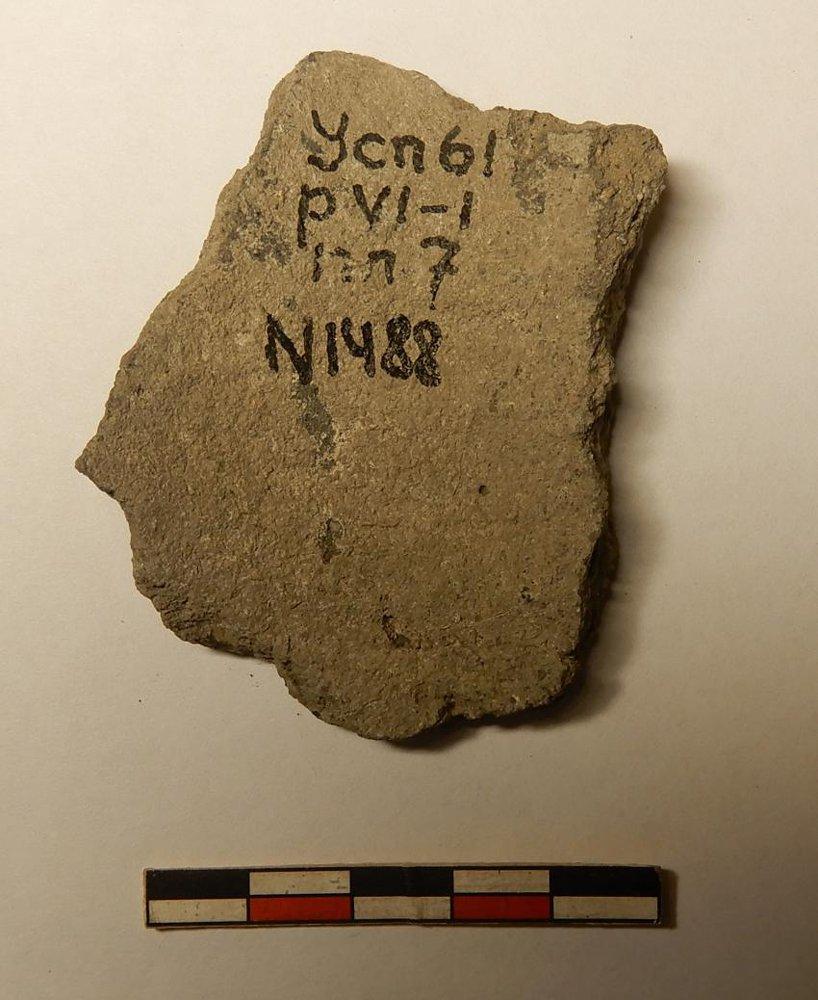 Усп 61
р VI-1
пл 7
N1488